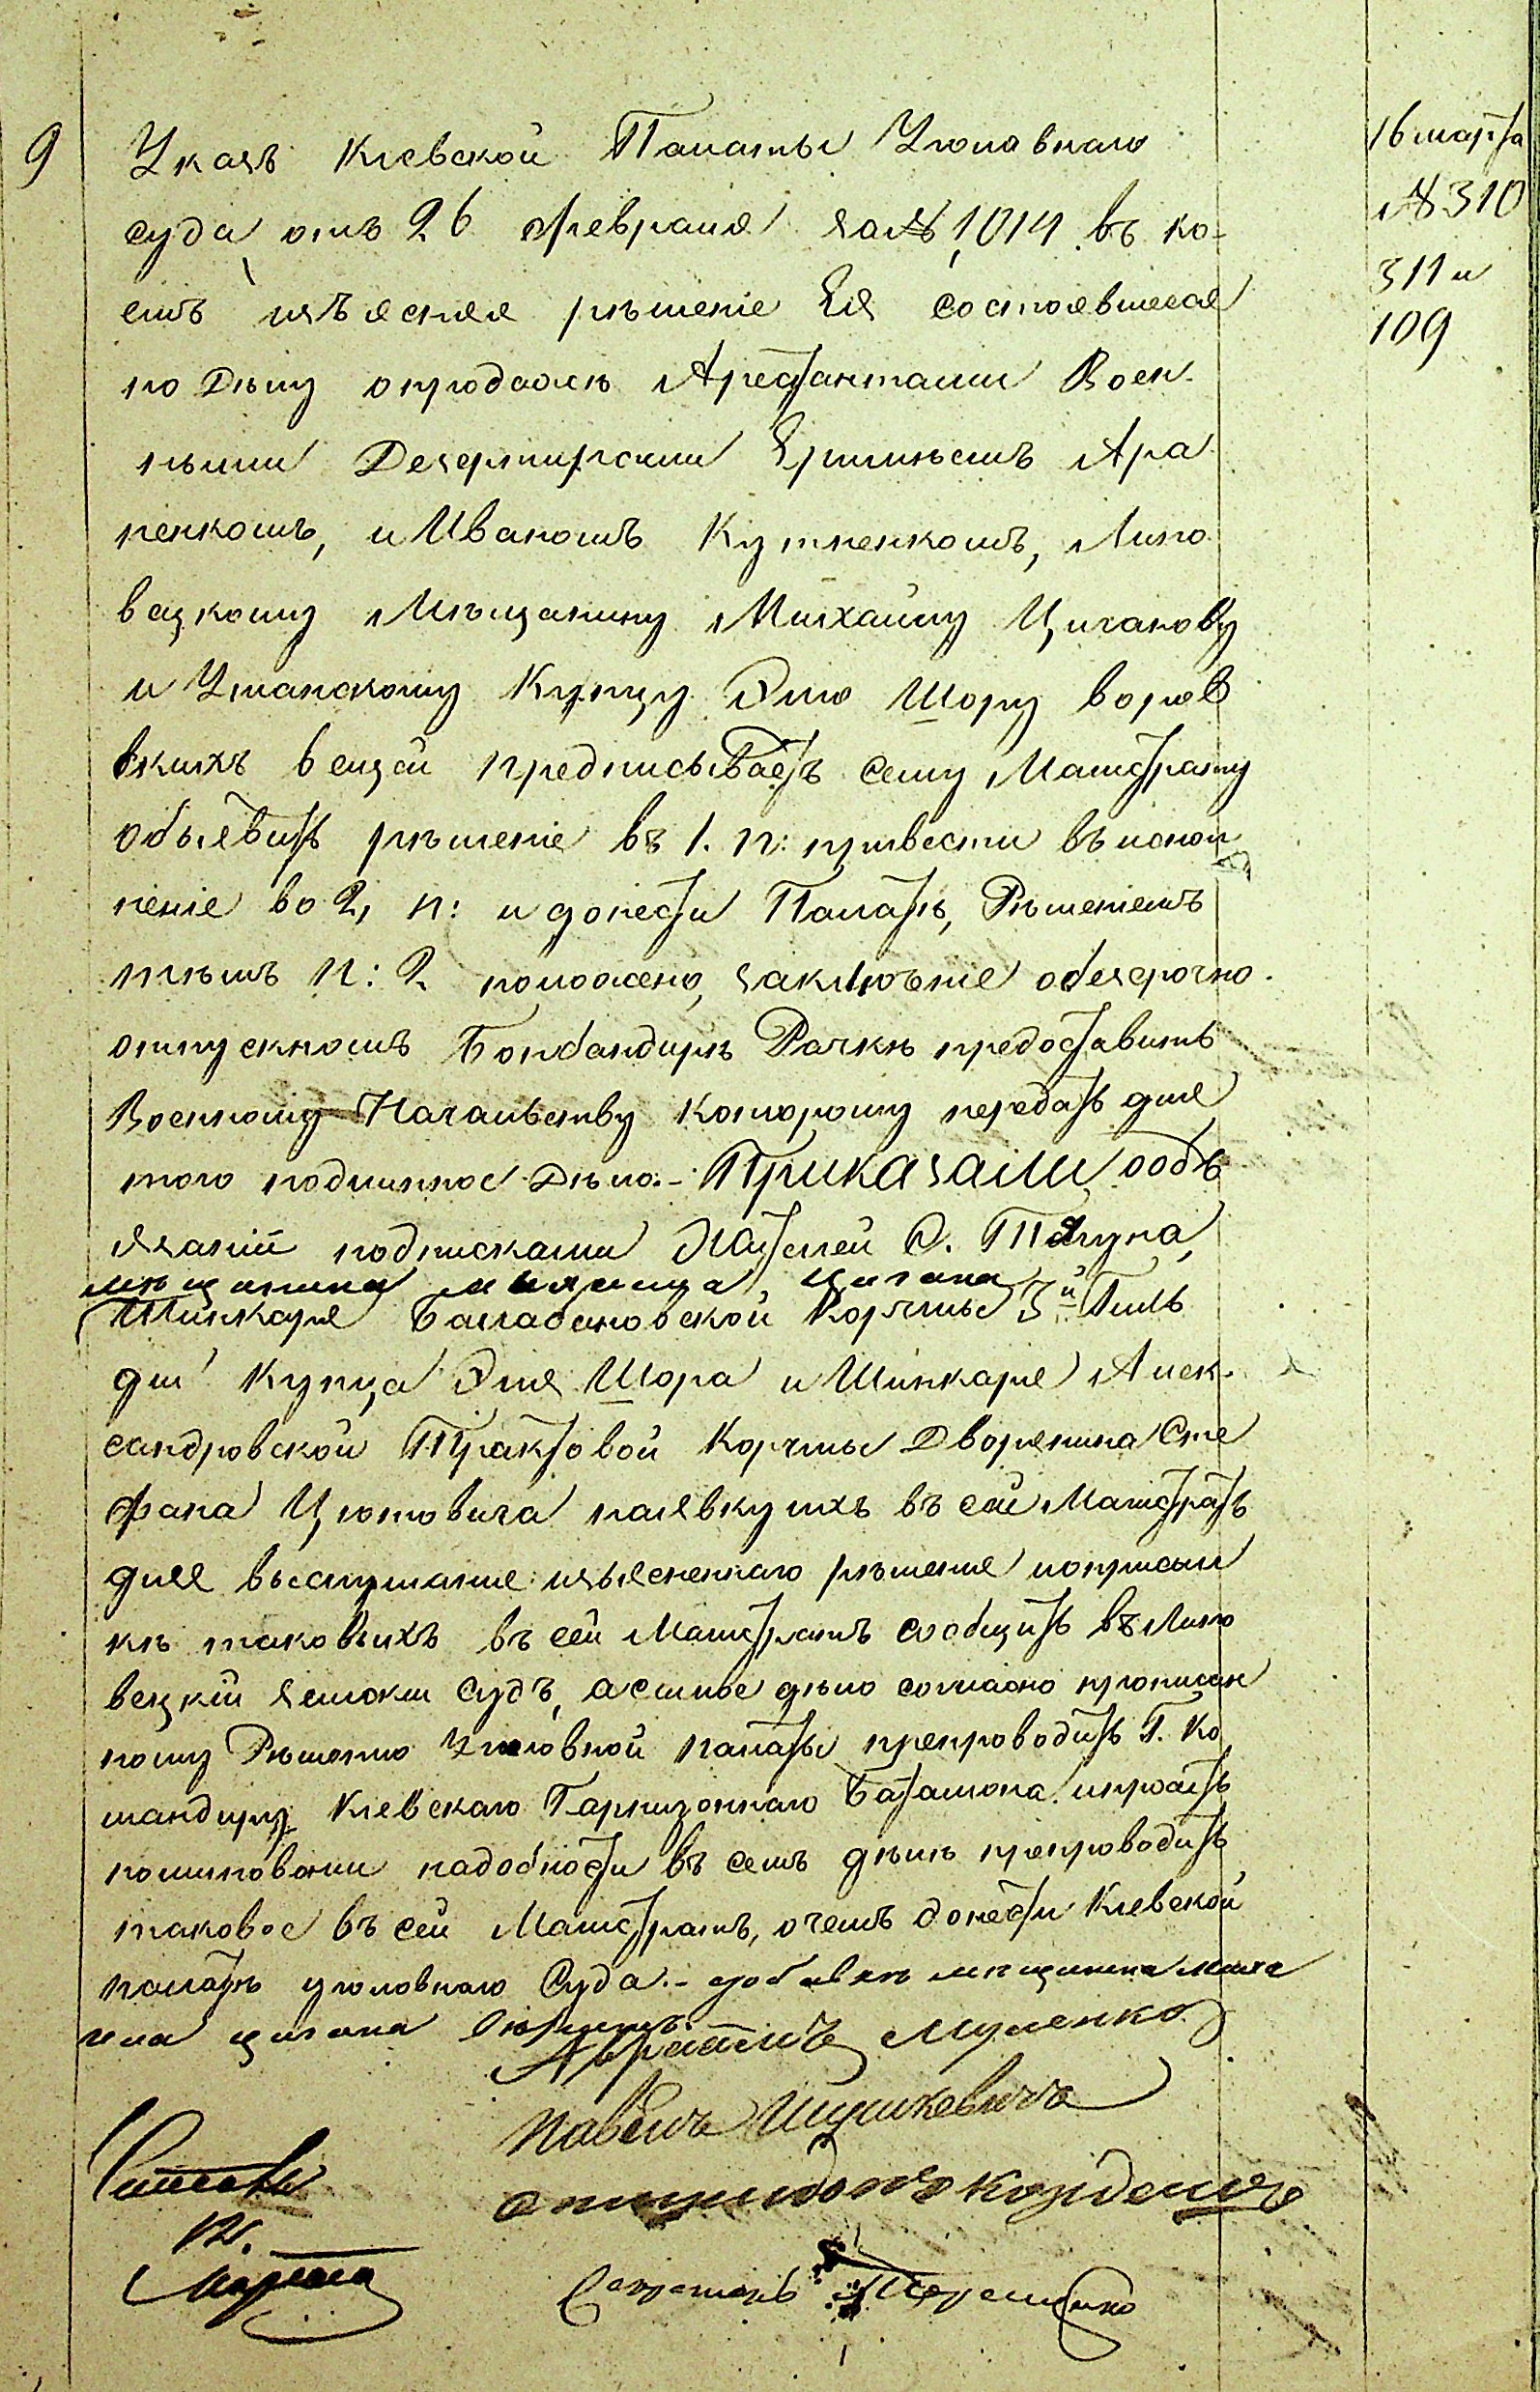 9
Указъ Кіевской Палаты Уголовнаго
суда отъ 26 февраля за № 1,014 въ ко-
емъ изъясняя рѣшеніе Ея состоявшееся
по Дѣлу опродажѣ Арестантами Воен-
ными Дезертирами Еримѣемъ Ара
пенкомъ, и Иваномъ Кутненкомъ, Липо
вецкому Мѣщанину Михайлу Циганову
и Уманскому Купцу Элю Шору воров
скихъ вещей предписываетъ сему Магистрату
объявить рѣшеніе въ 1. п: привести въ испол
неніе во 2, п: и донести Палатѣ, Рѣшеніемъ
тѣмъ п: 2 положено, заключѣніе обезсрочно-
отпускномъ Бомбандирѣ Рачкѣ предоставить
Военному Начальству которому передать для
того подлинное Дѣло.- Приказали ооб
язаніи подписками Жителей О. Тягуна,
мѣщанина Михайла Цигана
Шинкаря Балабановской Корчмы 3й Гиль
діи Купца Эля Шора и Шинкаря Алек-
сандровской Трактовой Корчмы Дворянина Сте
фана Цютовича наявку ихъ въ сей Магистратъ
для выслушанія изъясненнаго рѣшенія иоприсыл
кѣ таковыхъ въ сей Магистратъ сообщить въ Липо
вецкій Земскій Судъ, а самое дѣло согласно прописан
ному Рѣшенію Уголовной палаты препроводить Г. Ко
мандиру Кіевскаго Гарнизоннаго Баталіона. ипросить
поминованіи надобности въ семъ дѣлѣ препроводить
таковое въ сей Магистратъ, очемъ донести Кіевской
палатѣ уголовнаго Суда.- добавкѣ мѣщанина Миха
ила цигана
Авраамъ Муленко
Павелъ Шушкевичъ
спиридонъ
Секретарь
Марта
16 марта
№ 310
311 и
109